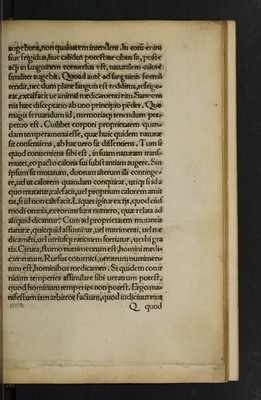 augebunt, non qualitatem intendent. In eoru enim
siue frigidus, siue calidus potestate cibus sit, postea
q̃ in sanguinem conuersus est, naturalem calorē
similiter augebit. Quod autē ad sanguinis formā
tendit, nec dum plane sanguis est redditus, refrige-
rat, excalfacit ue animal medicamenti ritu. Sane om
nis haec disceptatio ab uno principio pēdet. Quo
magis seruandum id, memoriaq; tenendum per-
petuo est. Cuilibet corpori proprietatem quan-
dam temperamenti esse, quae huic quidem naturae
sit consentiens, ab hac uero sit dissentiens. Tum si
quod conueniens sibi est, in suam naturam trans-
mutet, eo pacto caloris sui substantiam augere. Sin
ipsum sit mutatum, duorum alterum illi continge-
re, uel ut calorem quandam conquirat, utiq; si id a
quo mutatur, calefacit, uel proprium calorem amit
tat, si id non calefacit. Liquet igitur ex ijs, quod eius
modi omnia, ex eorum sunt numero, quae relata ad
aliquid dicantur. Cum ad proprietatem mutantis
naturae, quicquid assumitur, uel nutrimenti, uel me
dicamēti, uel utriusq; rationem sortiatur, uerbi gra
tia. Cicuta, sturno nutrimentum est, homini medi-
camentum. Rursus coturnici, ueratrum nutrimen-
tum est, hominibus medicamen. Si quidem cotur
nicum temperies assimilare sibi ueratrum potest,
quod hominum temperies non potest. Ergo ma-
nifestum iam arbitror factum, quod iudicium eius
Q quod